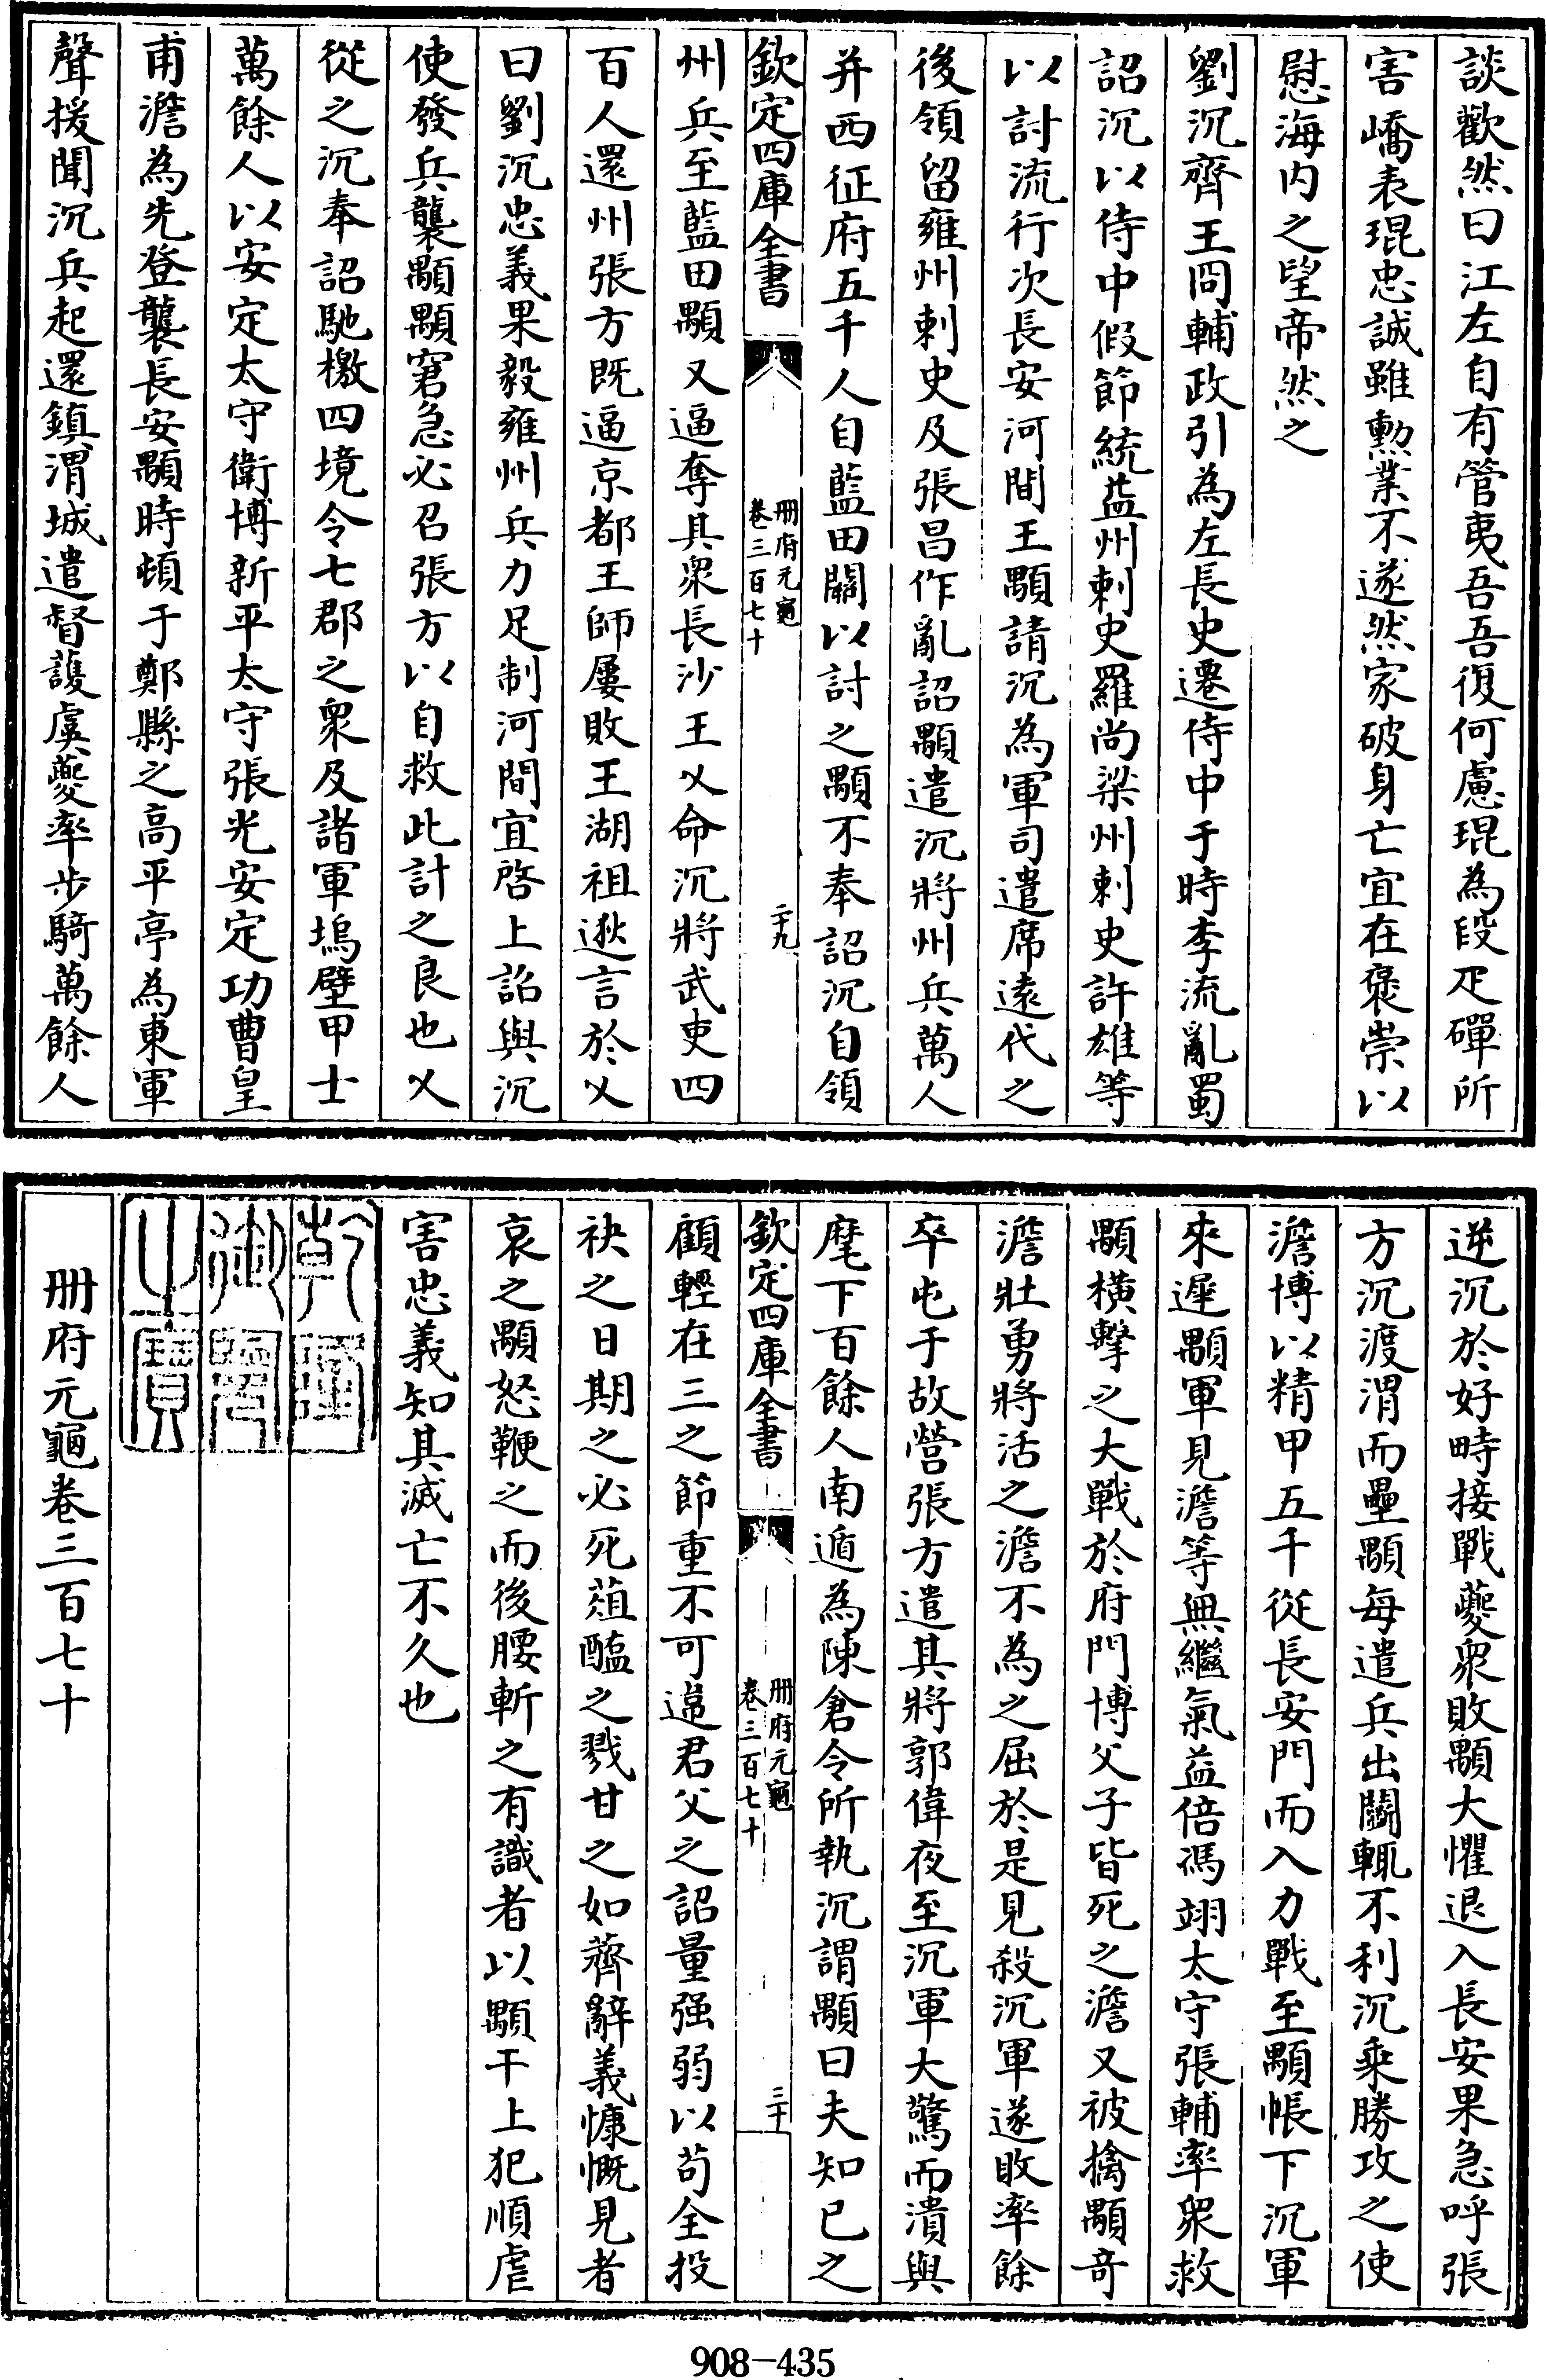 談歡然曰江左自有管夷吾吾復何慮琨為段疋磾所
害嶠表琨忠誠雖勲業不遂然家破身亡宜在褒崇以
慰海内之望帝然之
劉沉齊王冏輔政引為左長史遷侍中于時李流亂蜀
詔沉以侍中假節統益州刺史羅尚梁州刺史許雄等
以討流行次長安河間王顒請沉為軍司遣席遠代之
後領留雍州刺史及張昌作亂詔顒遣沉將州兵萬人
并西征府五千人自藍田關以討之顒不奉詔沉自領
欽定四庫全書
冊府元龜
卷三百七十
二十九
州兵至藍田顒又逼奪其衆長沙王乂命沉將武吏四
百人還州張方既逼京都王師屢敗王湖祖逖言於乂
曰劉沉忠義果毅雍州兵力足制河間宜啓上詔與沉
使發兵襲顒顒窘急必召張方以自救此計之良也乂
從之沉奉詔馳檄四境令七郡之衆及諸軍塢壁甲士
萬餘人以安定太守衛博新平太守張光安定功曹皇
甫澹為先登襲長安顒時頓于鄭縣之高平亭為東軍
聲援聞沉兵起還鎮渭城遣督護虞夔率步騎萬餘人
逆沉於好畤接戰夔衆敗顒大懼退入長安果急呼張
方沉渡渭而壘顒每遣兵出鬭輒不利沉乘勝攻之使
澹博以精甲五千從長安門而入力戰至顒帳下沉軍
來遲顒軍見澹等無繼氣益倍馮翊太守張輔率衆救
顒橫擊之大戰於府門博父子皆死之澹又被擒顒奇
澹壯勇將活之澹不為之屈於是見殺沉軍遂敗率餘
卒屯于故營張方遣其將郭偉夜至沉軍大驚而潰與
麾下百餘人南遁為陳倉令所執沉謂顒曰夫知已之
欽定四庫全書
冊府元龜
卷三百七十
三十
顧輕在三之節重不可違君父之詔量强弱以苟全投
袂之日期之必死葅醢之戮甘之如薺辭義慷慨見者
哀之顒怒鞭之而後腰斬之有識者以顒干上犯順虐
害忠義知其滅亡不久也
乾隆
御覽
之寶
冊府元龜卷三百七十
908-435